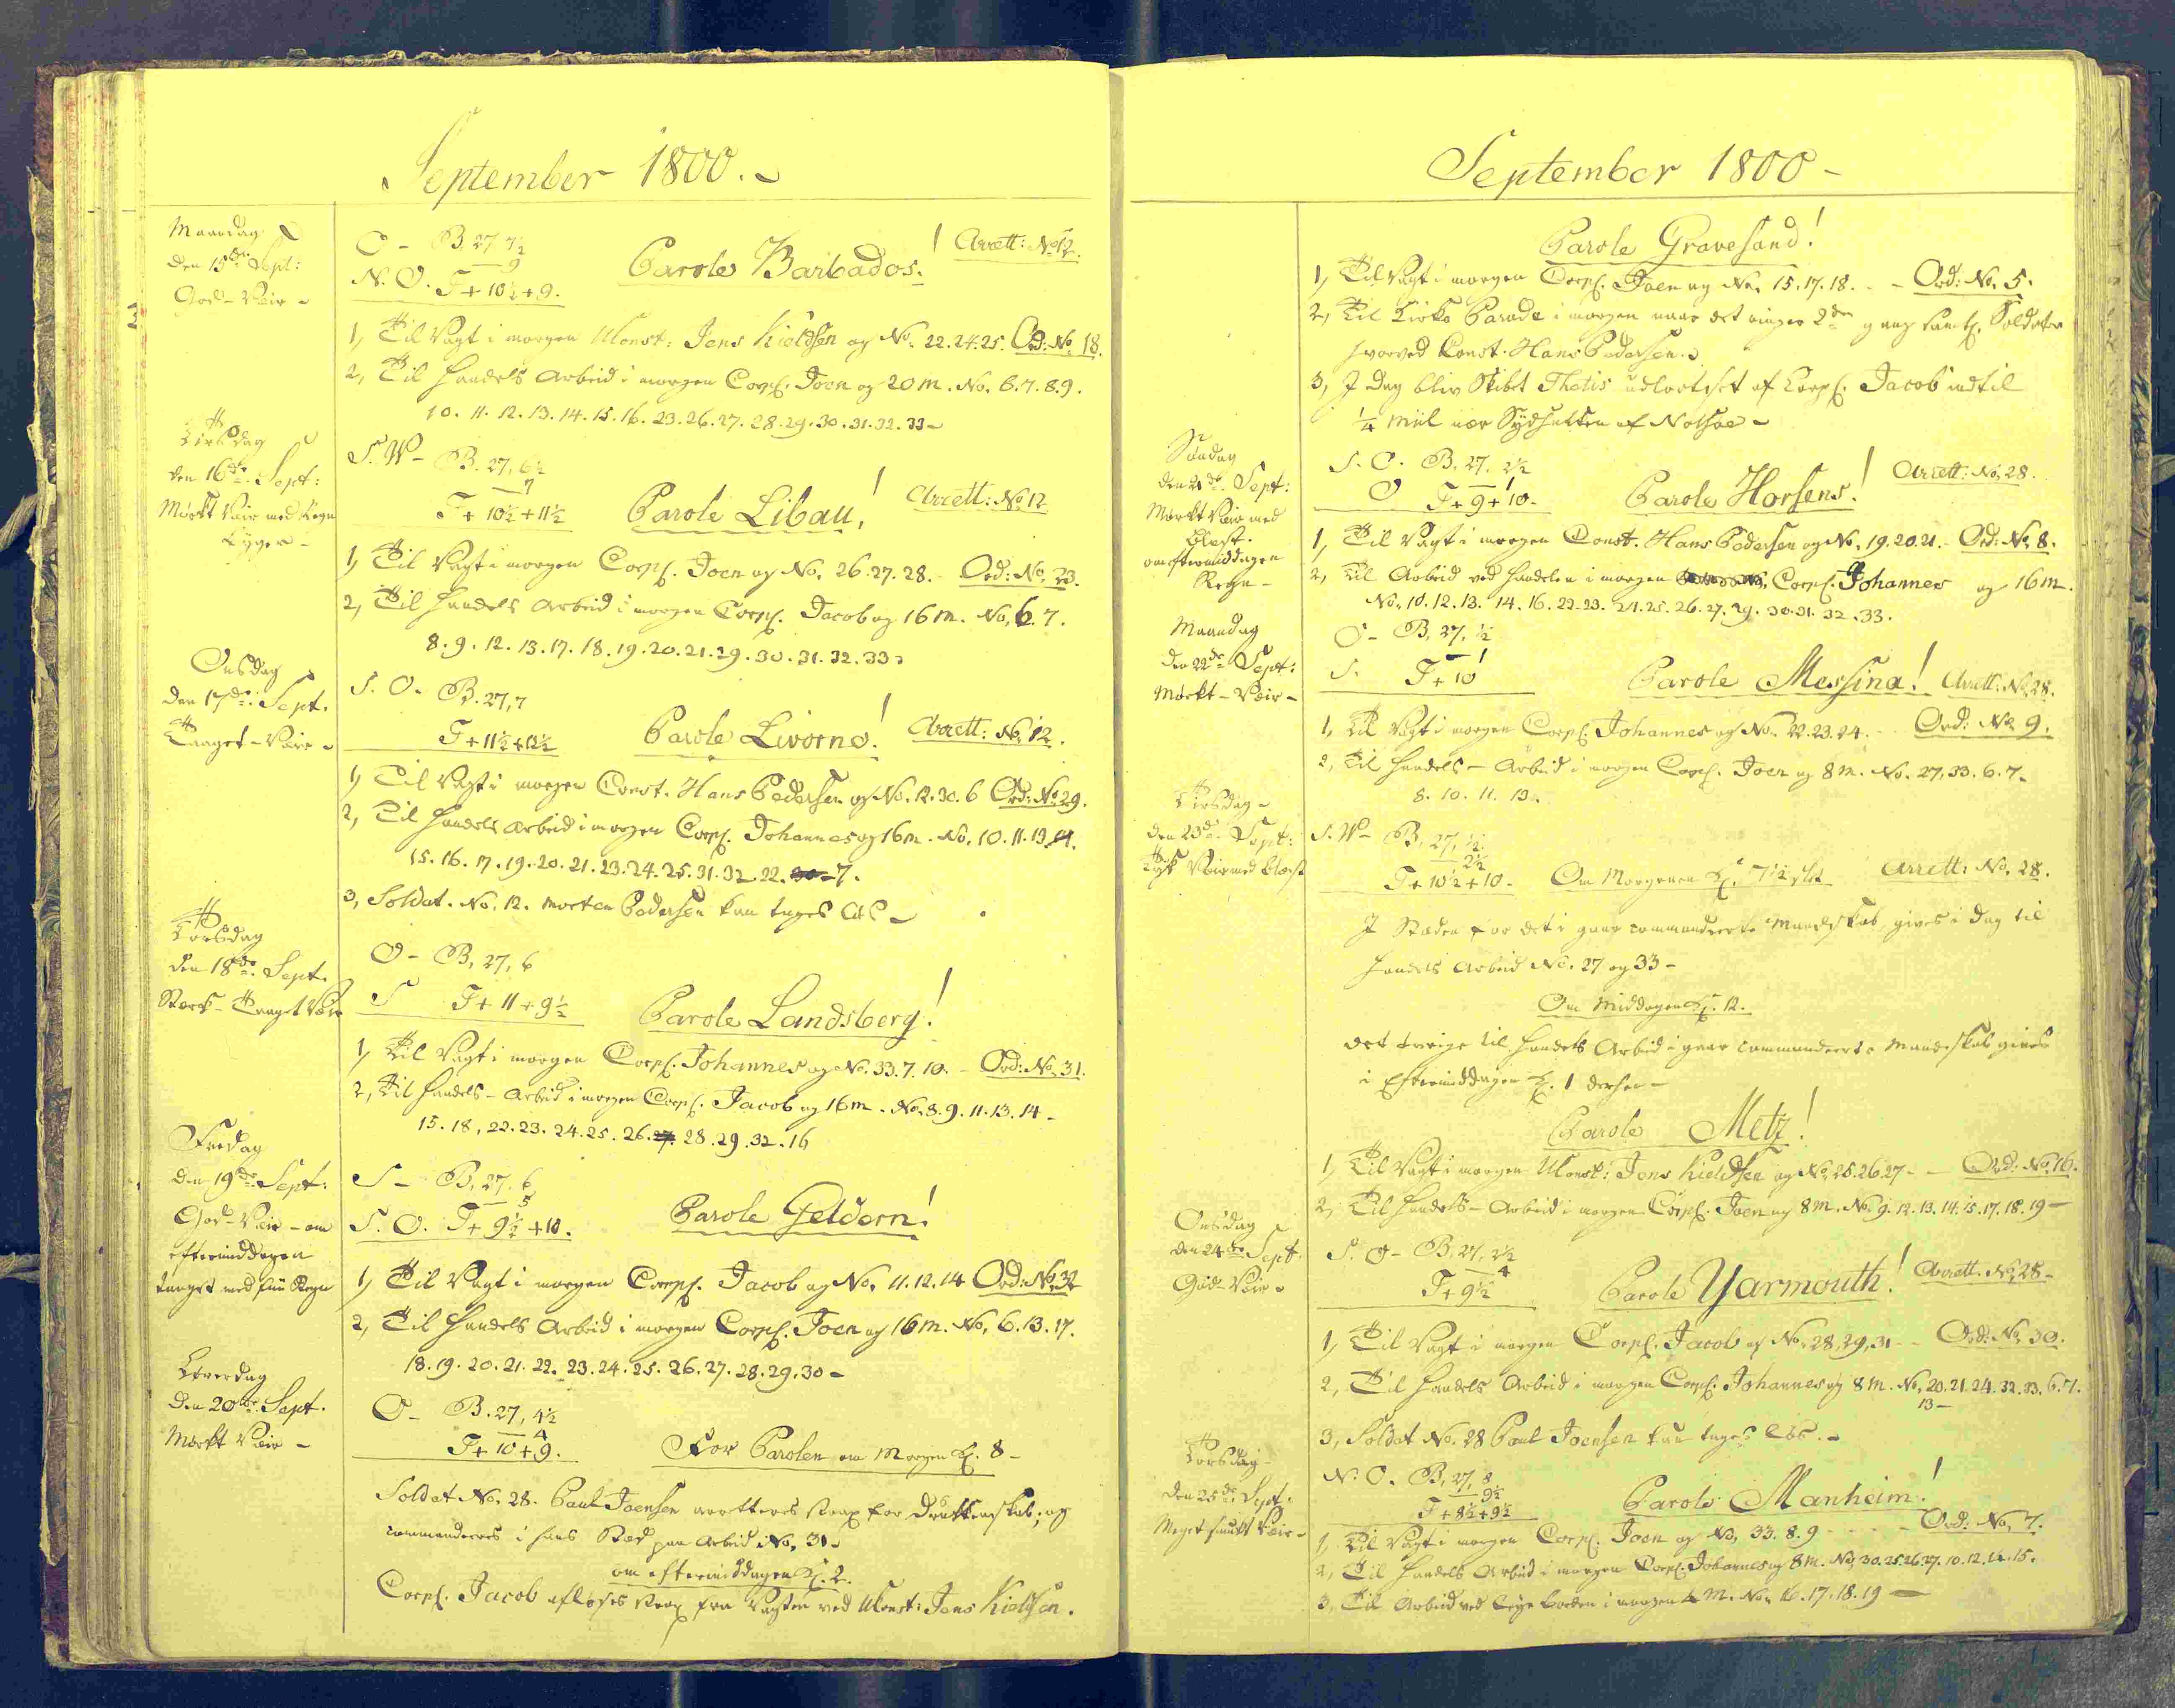 September 1800.
Maandag
den 15de Sept:
God-Veir-
O - B. 27, 7½
9
N. O. T + 10½ + 9.
Parole Barbados! Arrett: No 12.
1, Til Vagt i morgen UConst: Jens Kieldsen og No. 22.24.25. Ord: No. 18.
2, Til Handels Arbeid i morgen Corpl. Joen og 20 m. No. 6.7.8.9.
10.11.12.13.14.15.16.23.26.27.28.29.30.31.32.33-
Tirsdag
den 16de Sept:
Mørkt Veir med Regn
Byger-
S. W- B. 27, 6½
7
T + 10½ + 11½
Parole Libau! Arrett: No 12
1, Til Vagt i morgen Corpl. Joen og No. 26.27.28. - Ord: No. 23.
2, Til Handels Arbeid i morgen Corpl. Jacob og 16 m. No. 6.7.
8.9.12.13.17.18.19.20.21.29.30.31.32.33
Onsdag
den 17de Sept.
Taaget-Veir-
S. O- B. 27, 7
T + 11½ + 12½
Parole Livorno! Arrett: No. 12.
1, Til Vagt i morgen Const. Hans Pedersen og No. 12.30.6 Ord: No. 29.
2, Til Handels Arbeid i morgen Corpl. Johannes og 16 m. No. 10.11.13.14.
15.16.17.19.20.21.23.24.25.31.32.22.30-7.
3, Soldat. No. 12. Morten Pedersen kan tages løs-
Torsdag
den 18de Sept.
Stærk-Taaget Veir
O - B. 27, 6
S T + 11 + 9½
Parole Landsberg!
1, Til Vagt i morgen Corpl. Johannes og No. 33.7.10. - Ord: No. 31.
2, Til Handels-Arbeid i morgen Corpl. Jacob og 16 m. No. 8.9.11.13.14-
15.18,22.23.24.25.26.27.28.29.32.16
Fredag
den 19de Sept:
God-Veir-om
eftermiddagen
taaget med fiin Regn
S - B. 27. 6
5
S. O. T + 9½ + 10.
Parole Geldern!
1, Til Vagt i morgen Corpl. Jacob og No. 11.12.14 Ord: No. 32
2, Til Handels Arbeid i morgen Corpl. Joen og 16 m. No. 6.13.17.
18.19.20.21.22.23.24.25.26.27.28.29.30-
Løverdag
den 20de Sept.
Mørkt Veir-
O - B. 27, 4½
4
T + 10 + 9.
For Parolen om Morgen Kl. 8-
Soldat No. 28. Paul Joensen arretteres strax for Drukkenskab; og
commanderes i hans Sted paa Arbeid No. 31-
om eftermiddagen Kl. 2.
Corpl. Jacob afløses strax fra Vagten ved UConst: Jens Kieldsen.
September 1800-
Parole Gravesand!
1, Til Vagt i morgen Corpl. Joen og No. 15.17.18. - - Ord: No. 5.
2, Til Kirke Parade i morgen naar det ringer 2den gang samtl. Soldater
hvorved Const. Hans Pedersen.
3, I Dag blev Skibet Thetis udlodset af Corpl. Jacob indtil
¼ Miil nær Sydhalten af Nolsøe-
Søndag
den 21de Sept:
Mørkt Veir med
Blæst.
om eftermiddagen
Regn-
S. O. B. 27. 2½
1
O T + 9 + 10-
Parole Horsens! Arrett: No. 28.
1, Til Vagt i morgen Const. Hans Pedersen og No. 19.20.21. - Ord: No. 8.
2, Til Arbeid ved Handelen i morgen Corpl. Johannes og 16 m.
No. 10.12.13.14.16.22.23.24.25.26.27.29.30.31.32.33.
Maandag
den 22de Sept:
Mørkt-Veir-
O- B. 27, ½
1
S. T + 10
Parole Messina! Arrett: No. 28.
1, Til Vagt i morgen Corpl. Johannes og No. 22.23.24. - - Ord: No. 9.
2, Til Handels-Arbeid i morgen Corpl. Joen og 8 m. No. 27.33.6.7.
8.10.11.13.
Tirsdag-
den 23de Sept:
Tyk Veir med Blæst
S. W- B. 27, ½
2½
T + 10½ + 10-
Om Morgenen Kl. 7½ slet Arrett: No. 28.
I Steden for det i gaar commanderte Mandskab, gives i Dag til
Handels Arbeid No. 27 og 33-
Om Middagen Kl. 12.
det øvrige til Handels Arbeid i gaar commanderte Mandskab gives
i Eftermiddagen Kl. 1 derhen-
Parole Metz!
1, Til Vagt i morgen UConst: Jens Kieldsen og No. 25.26.27 - - Ord: No. 16.
2, Til Handels-Arbeid i morgen Corpl. Joen og 8 m. No. 9.12.13.14.15.17.18.19-
Onsdag
den 24de Sept.
God-Veir-
S. O- B. 27, 2½
4
T + 9½
Parole Yarmouth! Arrett. No. 28-
1, Til Vagt i morgen Corpl. Jacob og No. 28,29,31 - - Ord: No. 30.
2, Til Handels Arbeid i morgen Corpl. Johannes og 8 m. No. 20.21.24.32.33.6.7.
13-
3, Soldat No. 28 Paul Joensen kan tages løs.-
Torsdag-
den 25de Sept:
Meget smukt Veir-
N. O. B. 27, 8
9½
T + 8½ + 9½
Parole Manheim!
1, Til Vagt i morgen Corpl. Joen og No. 33.8.9 - - - - Ord: No. 7.
2, Til Handels Arbeid i morgen Corpl. Johannes og 8 m. No. 30.25.26.27.10.12.14.15.
3, Til Arbeid ved i morgen 4 M. No. 16.17.18.19-